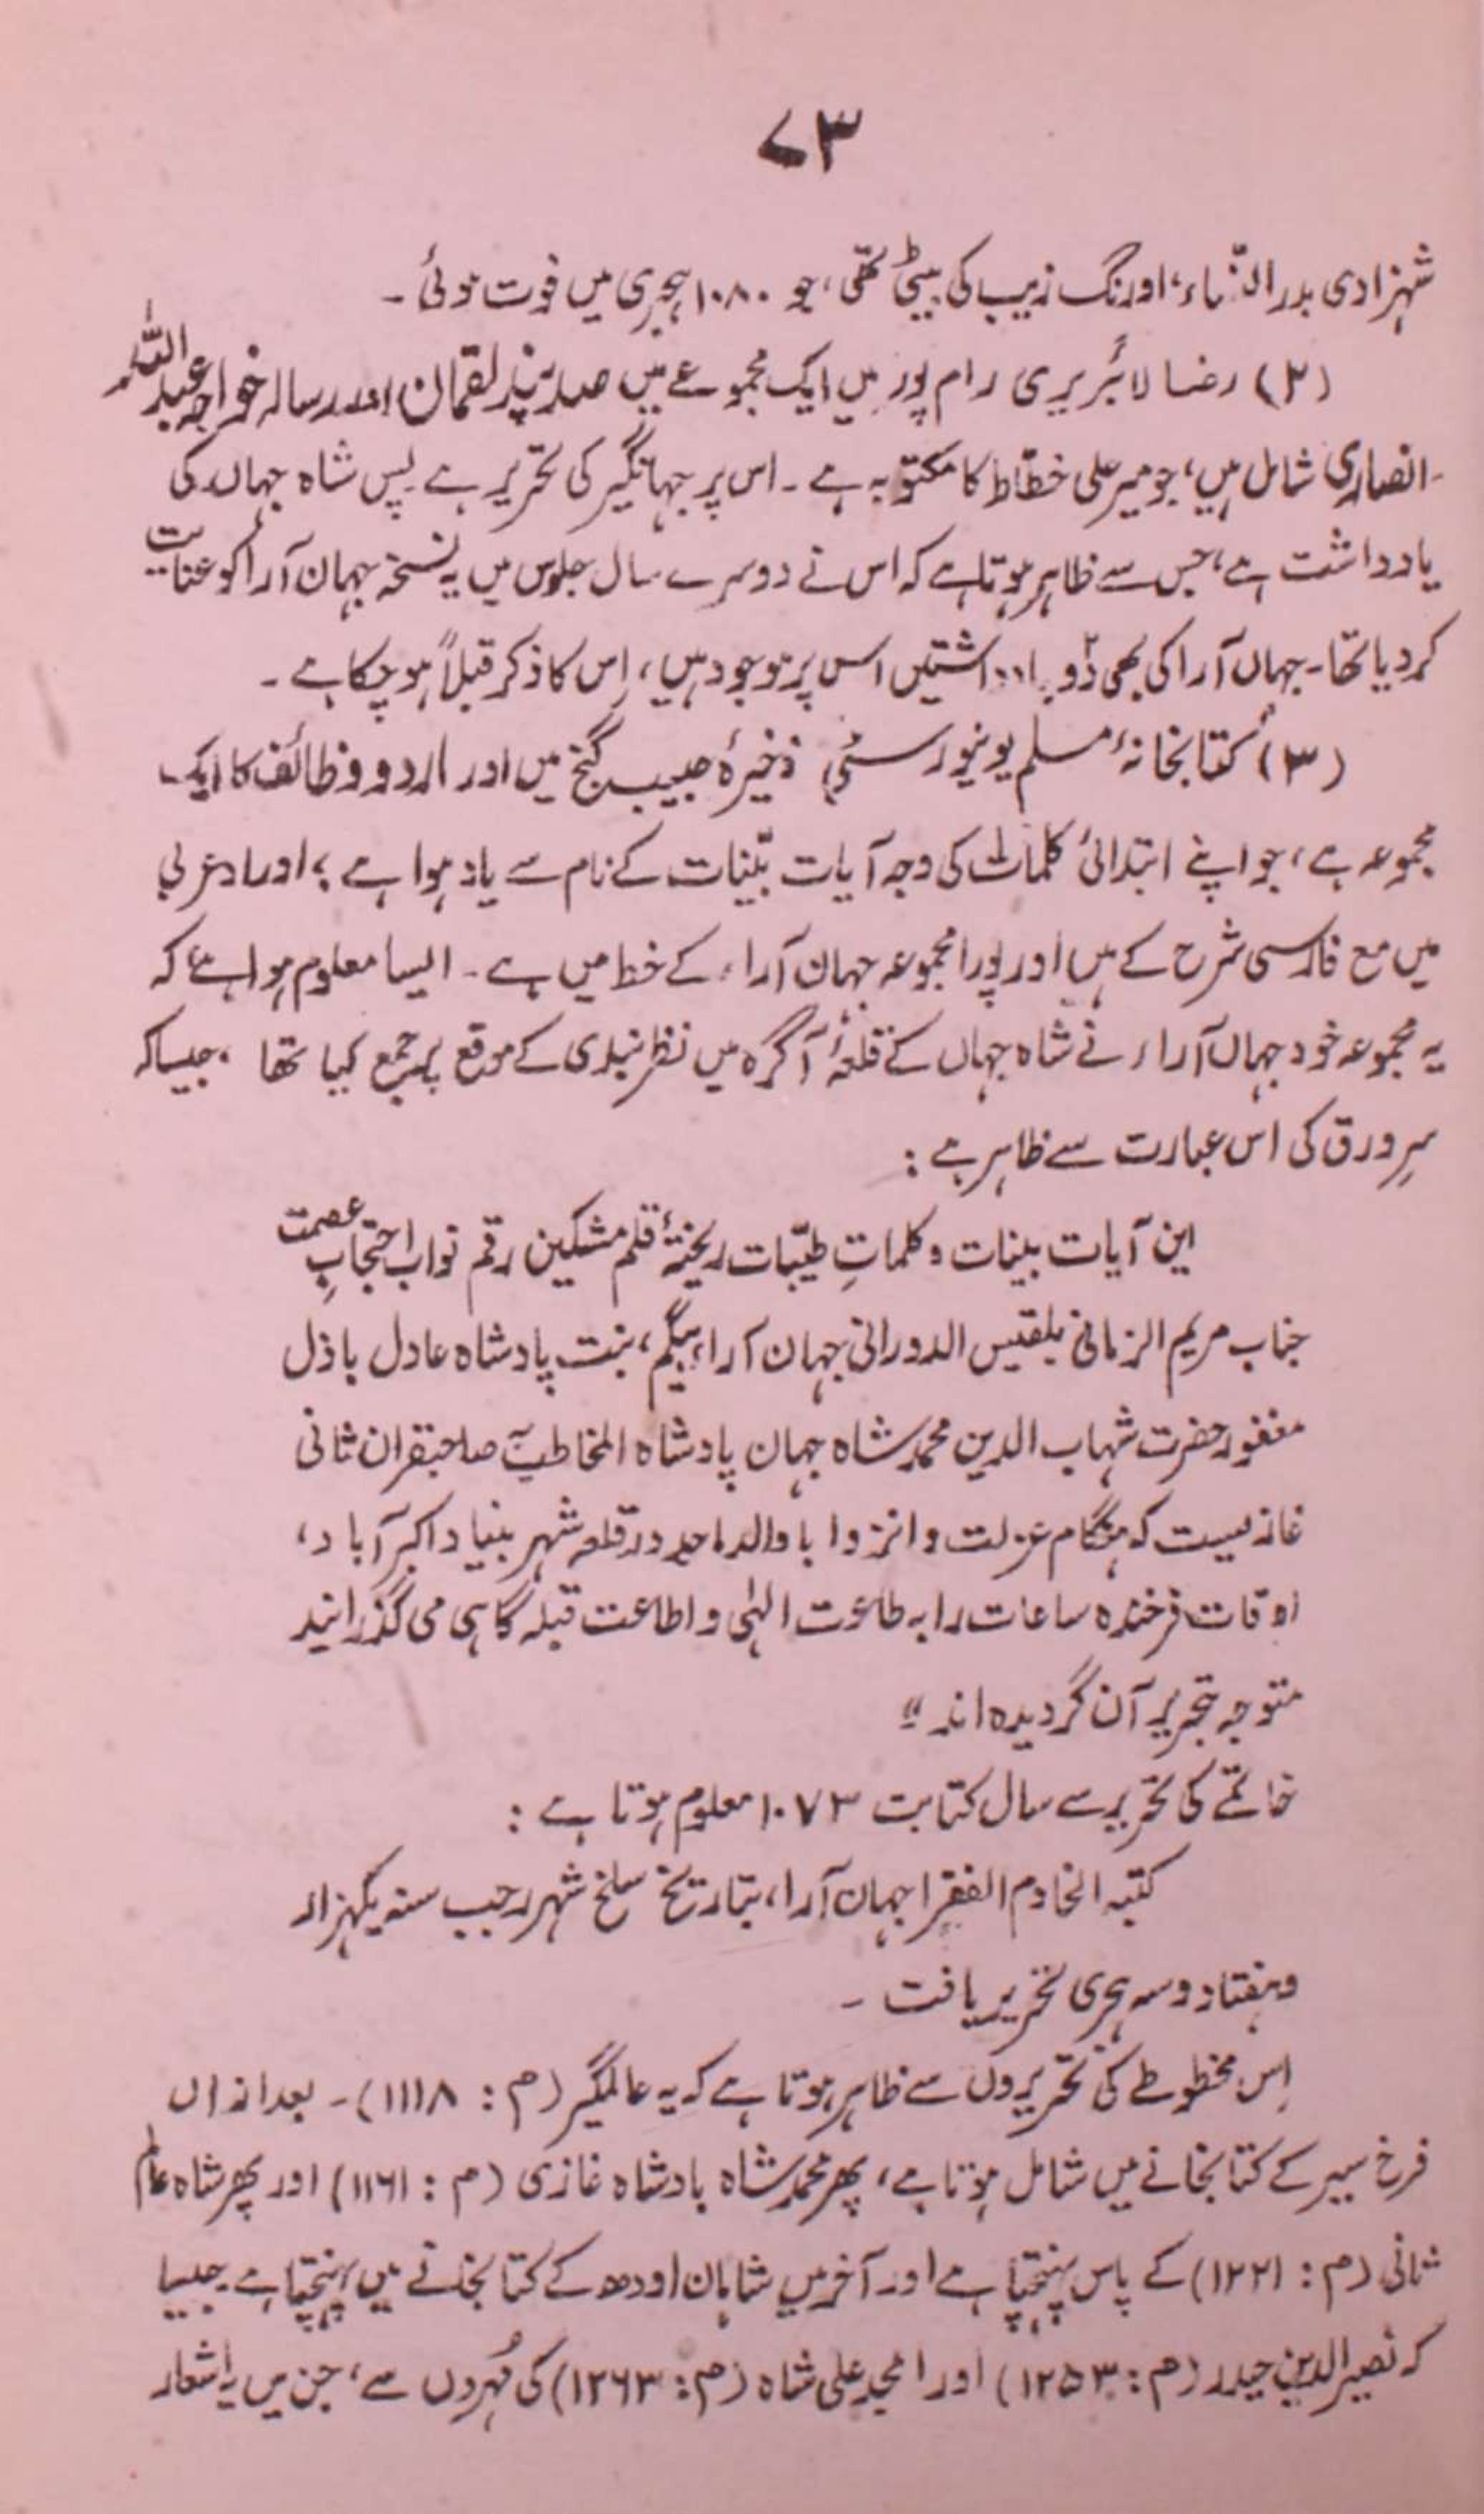 ۷۳
شہزادی بدر النساء، اورنگ زیب کی بیٹی تھی، جو ۱۰۸۰ ہجری میں فوت ہوئی۔
(۲) رضا لائبریری رام پور میں ایک مجموعے میں صد پند لقمان اور رسالہ خواجہ عبداللہ
انصاری شامل ہیں، جو میر علی خطّاط کا مکتوبہ ہے۔ اس پر جہانگیر کی تحریر ہے پس شاہ جہاں کی
یادداشت ہے، جس سے ظاہر ہوتا ہے کہ اس نے دوسرے سال جلوس میں یہ نسخہ جہان آرا کو عنایت
کر دیا تھا۔ جہان آرا کی بھی دو یادداشتیں اس پر موجود ہیں، اِس کا ذکر قبلاً ہو چکا ہے۔
(۳) کتابخانۂ مسلم یونیورسٹی ذخیرۂ حبیب گنج میں اور اد و وظائف کا ایک
مجموعہ ہے، جو اپنے ابتدائی کلمات کی وجہ آیات بیّنات کے نام سے یاد ہوا ہے؛ اوراد عربی
میں مع فارسی شرح کے ہیں اور پورا مجموعہ جہان آراء کے خط میں ہے۔ ایسا معلوم ہوا ہے کہ
یہ مجموعہ خود جہاں آراء نے شاہ جہاں کے قلعۂ آگرہ میں نظر بندی کے موقع پر جمع کیا تھا، جیسا کہ
سرِ ورق کی اس عبارت سے ظاہر ہے :
این آیات بینات و کلماتِ طیّبات ریختۂ قلم مشکین رقم نواب احتجابِ عصمت
جناب مریم الزمانی بلقیس الدورانی جہان آراء بیگم، بنت پادشاہ عادل باذل
مغفور حضرت شہاب الدین محمد شاہ جہان پادشاہ المخاطب صاحبقران ثانی
غازیست کہ ہنگام عزلت و انزوا با والد ماجد در قلعہ شہر بنیاد اکبر آباد،
اوقات فرخندہ ساعات را بہ طاعت الہٰی و اطاعت قبلہ گاہی می گذرانید
متوجہ تحریر آن گردیدہ اند"
خاتمے کی تحریر سے سال کتابت ۱۰۷۳ معلوم ہوتا ہے :
کتبہ الخادم الفقرا جہان آرا، بتاریخ سلخ شہر رجب سنہ یکہزار
و ہفتاد و سہ ہجری تحریر یافت۔
اِس مخطوطے کی تحریروں سے ظاہر ہوتا ہے کہ یہ عالمگیر (م : ۱۱۱۸)۔ بعد ازاں
فرخ سیر کے کتابخانے میں شامل ہوتا ہے، پھر محمد شاہ بادشاہ غازی (م : ۱۱۶۱) اور پھر شاہ عالم
ثانی (م : ۱۲۲۱) کے پاس پہنچتا ہے اور آخر میں شاہان اودھ کے کتابخانے میں پہنچتا ہے جیسا
کہ نصیر الدین حیدر (م : ۱۲۵۳) اور امجد علی شاہ (م : ۱۲۶۳) کی مُہروں سے، جن میں یہ اشعار